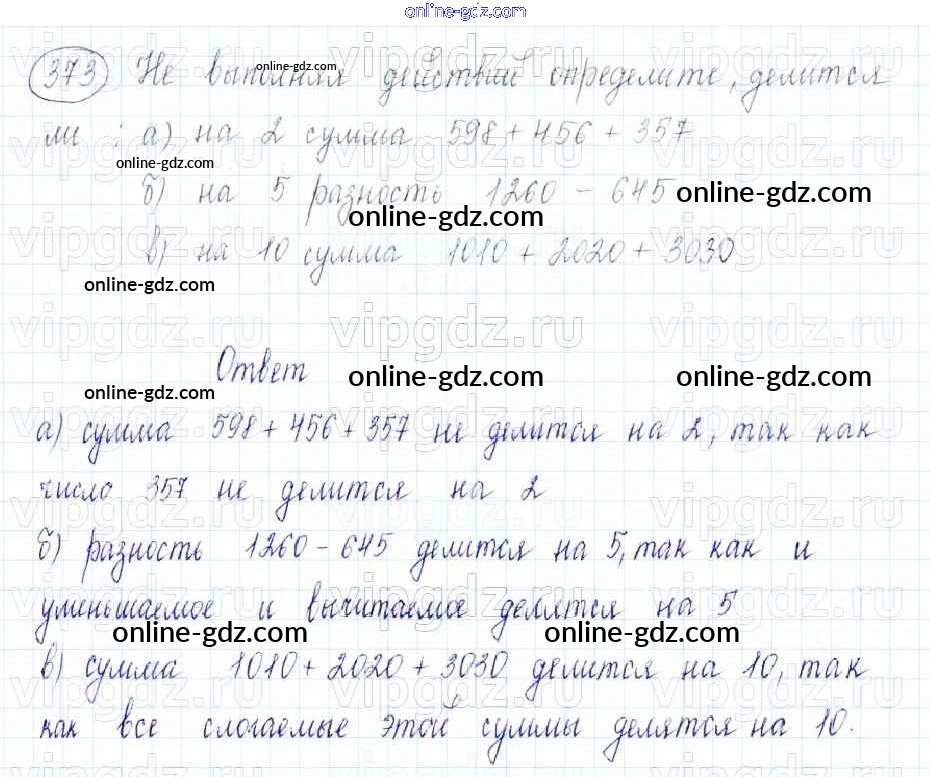 online-gdz.com
373 Не выполняя действий определите, делится
online-gdz.com
ли : а) на 2 сумма 598 + 456 + 357
online-gdz.com
б) на 5 разность 1260 - 645
online-gdz.com online-gdz.com
в) на 10 сумма 1010 + 2020 + 3030
online-gdz.com
vipgdz.ru vipgdz.ru vipgdz.ru
Ответ
online-gdz.com online-gdz.com online-gdz.com
а) сумма 598 + 456 + 357 не делится на 2, так как
число 357 не делится на 2
б) разность 1260 - 645 делится на 5, так как и
уменьшаемое и вычитаемое делятся на 5
online-gdz.com online-gdz.com
в) сумма 1010 + 2020 + 3030 делится на 10, так
как все слогаемые этой суммы делятся на 10.